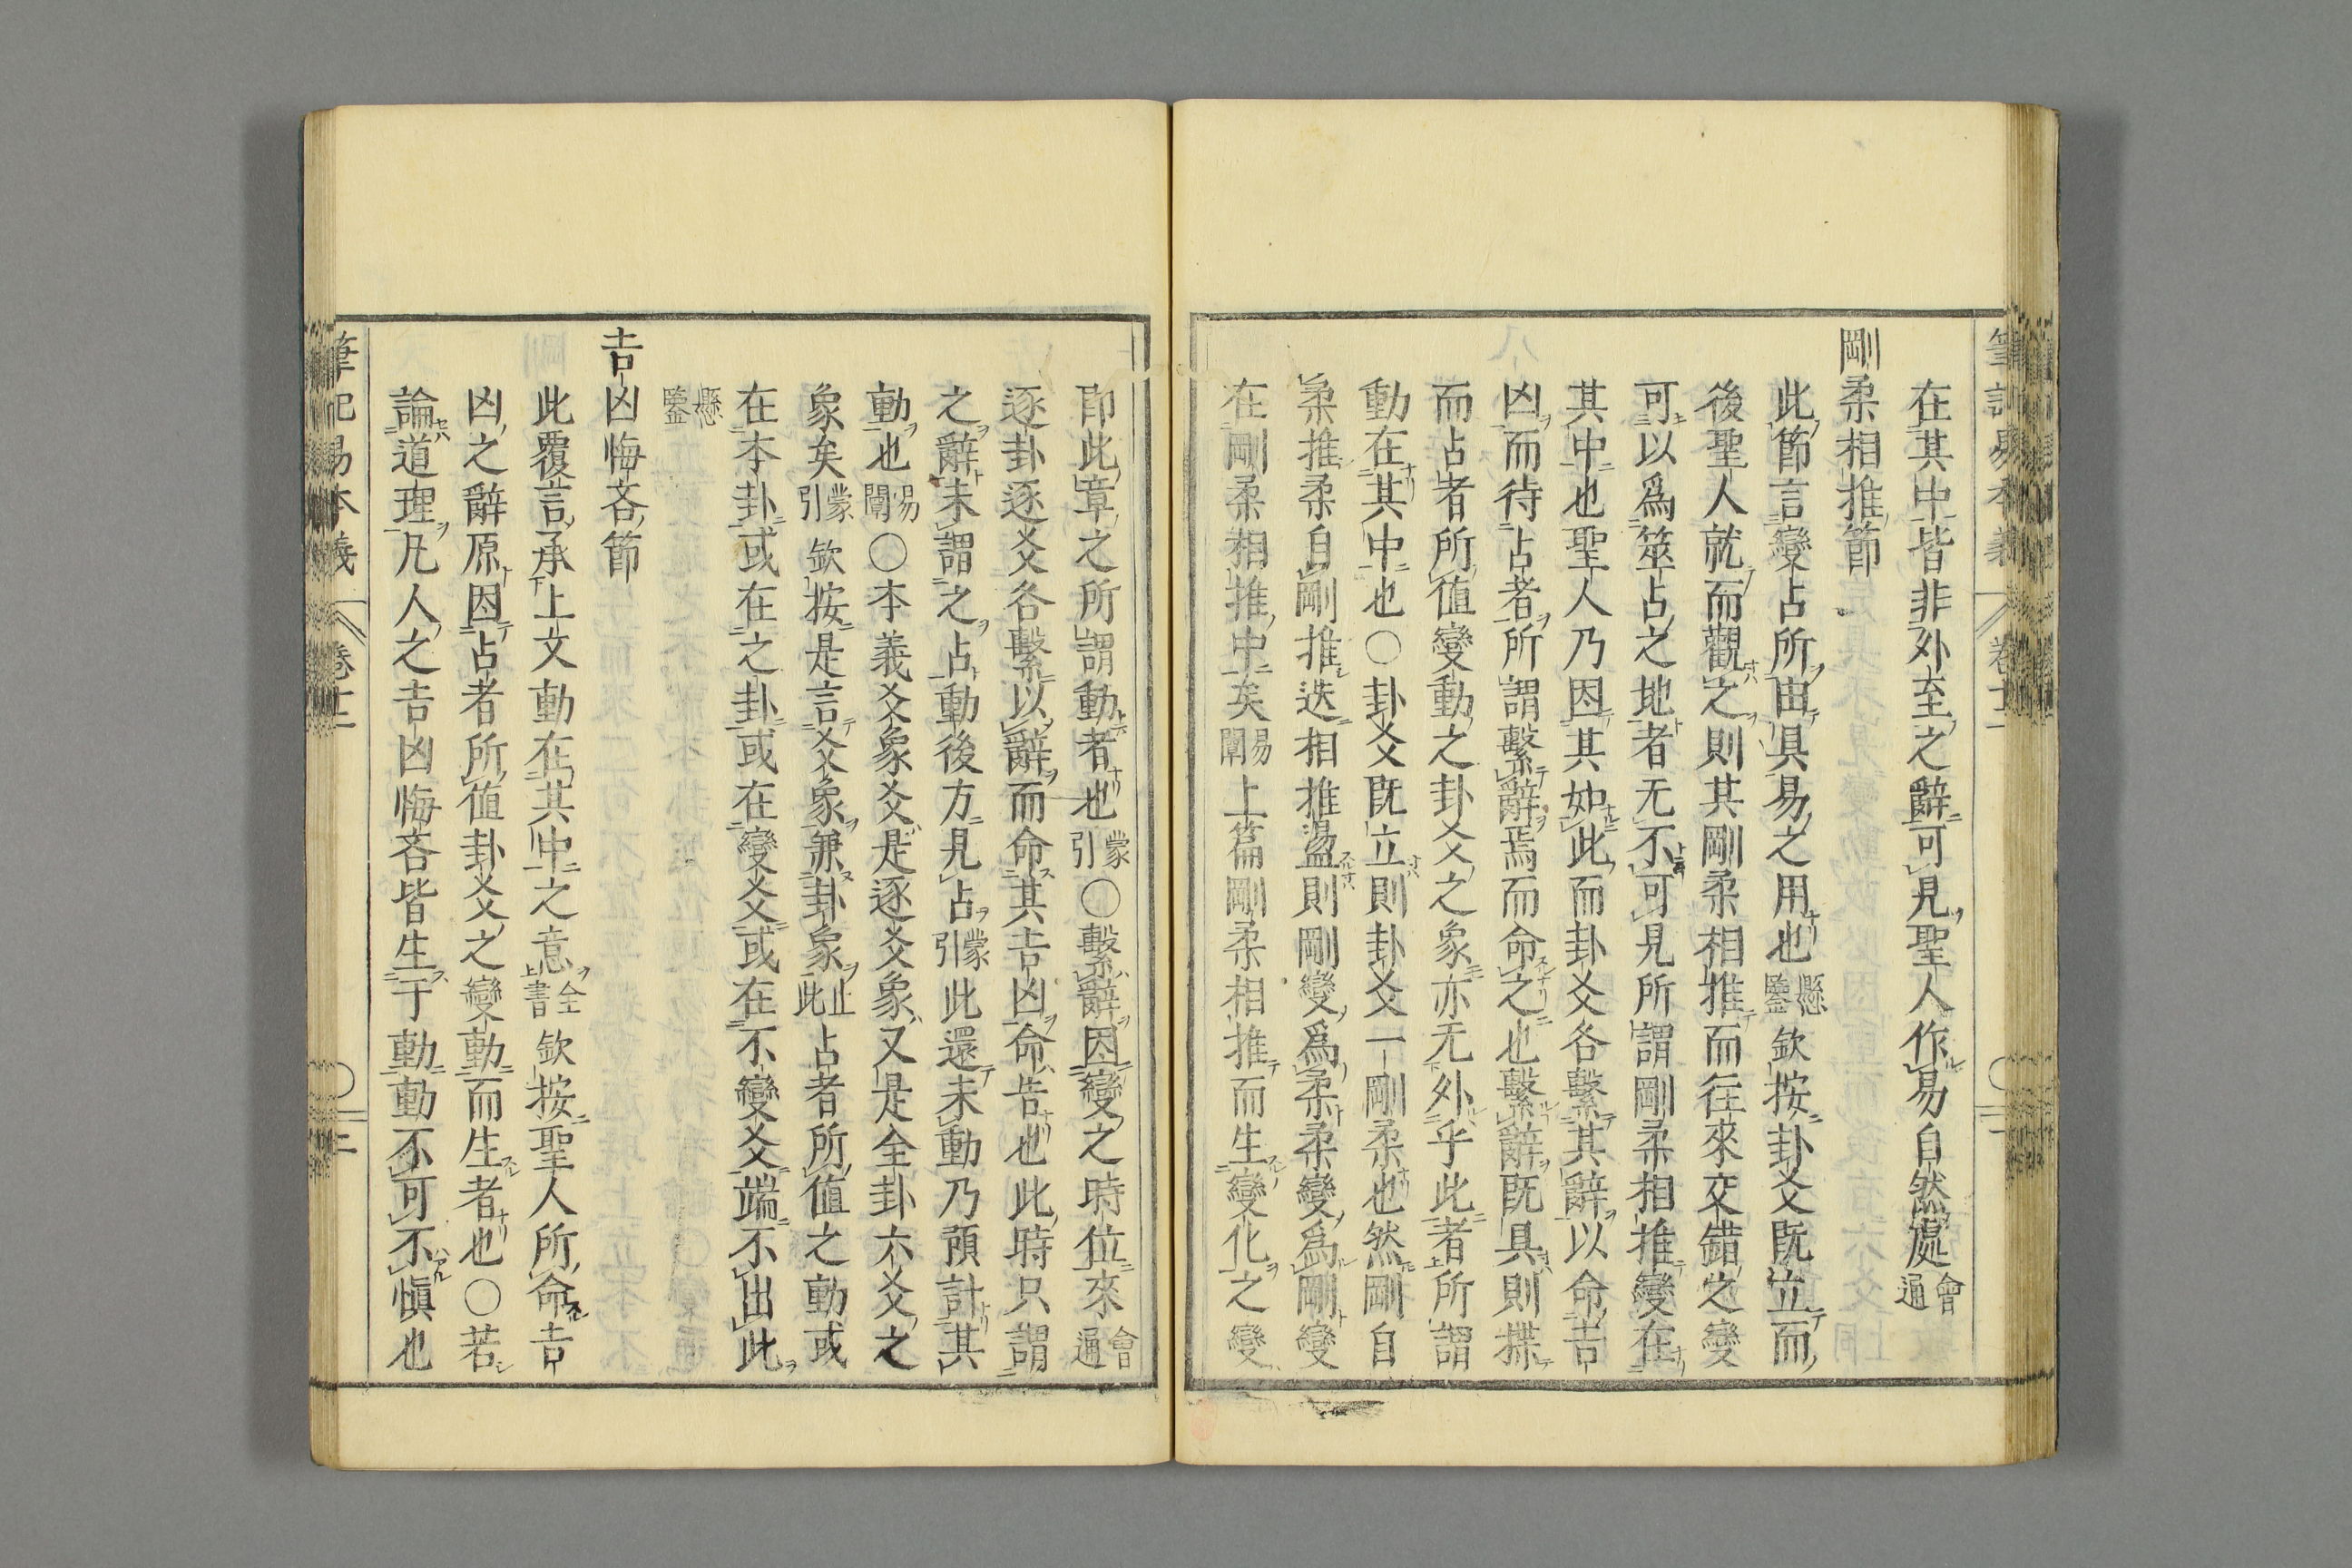 在其中皆非外至之辭可見聖人作易自然處會通
剛柔相推節
此節言變占所由具易之用也懸鑒欽按卦爻既立而
後聖人就而觀之則其剛柔相推而往來交錯之變
可以爲筮占之地者无不可見所謂剛柔相推變在
其中也聖人乃因其如此而卦爻各繫其辭以命吉
凶而待占者所謂繫辭焉而命之也繫辭既具則揲
而占者所值變動之卦爻之象亦无外乎此者所謂
動在其中也○卦爻既立則卦爻一剛柔也然剛自
柔推柔自剛推迭相推盪則剛變爲柔柔變爲剛變
在剛柔相推中矣易闡上篇剛柔相推而生變化之變
即此章之所謂動者也蒙引○繫辭因變之時位來會通
逐卦逐爻各繫以辭而命其吉凶命告也此時只謂
之辭未謂之占動後方見占蒙引此還未動乃預計其
動也易闡○本義爻象爻是逐爻象又是全卦六爻之
象矣蒙引欽按是言爻象兼卦象止此占者所值之動或
在本卦或在之卦或在變爻或在不變爻端不出此
懸鑒
吉凶悔吝節
此覆言承上文動在其中之意全書上欽按聖人所命吉
凶之辭原因占者所值卦爻之變動而生者也○若
論道理凡人之吉凶悔吝皆生于動動不可不慎也
筆記易本義 卷十二